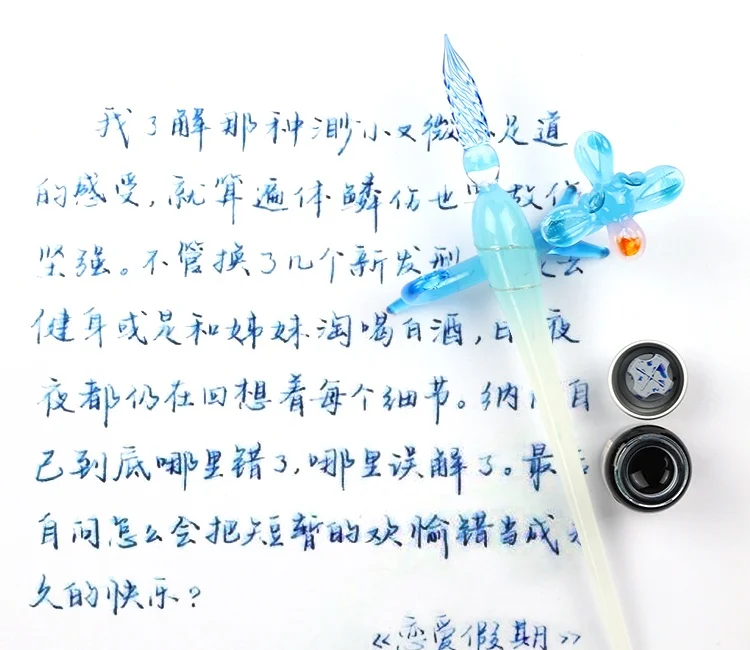 我了解那种渺小又微不足道
的感受,就算遍体鳞伤也要故作
坚强。不管换了几个新发型,去
健身或是和姊妹淘喝白酒,日夜
夜都仍在回想着每个细节。纳闷自
己到底哪里错了,哪里误解了。最后
自问怎么会把短暂的欢愉错当成永
久的快乐?
《恋爱假期》